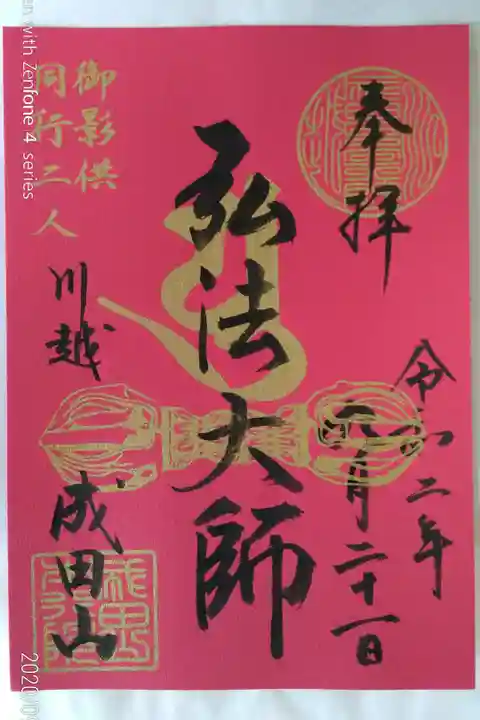 奉拝
令和二年
九月二十一日
弘法大師
御影供
同行二人
川越
成田山
with Zenfone 4 series